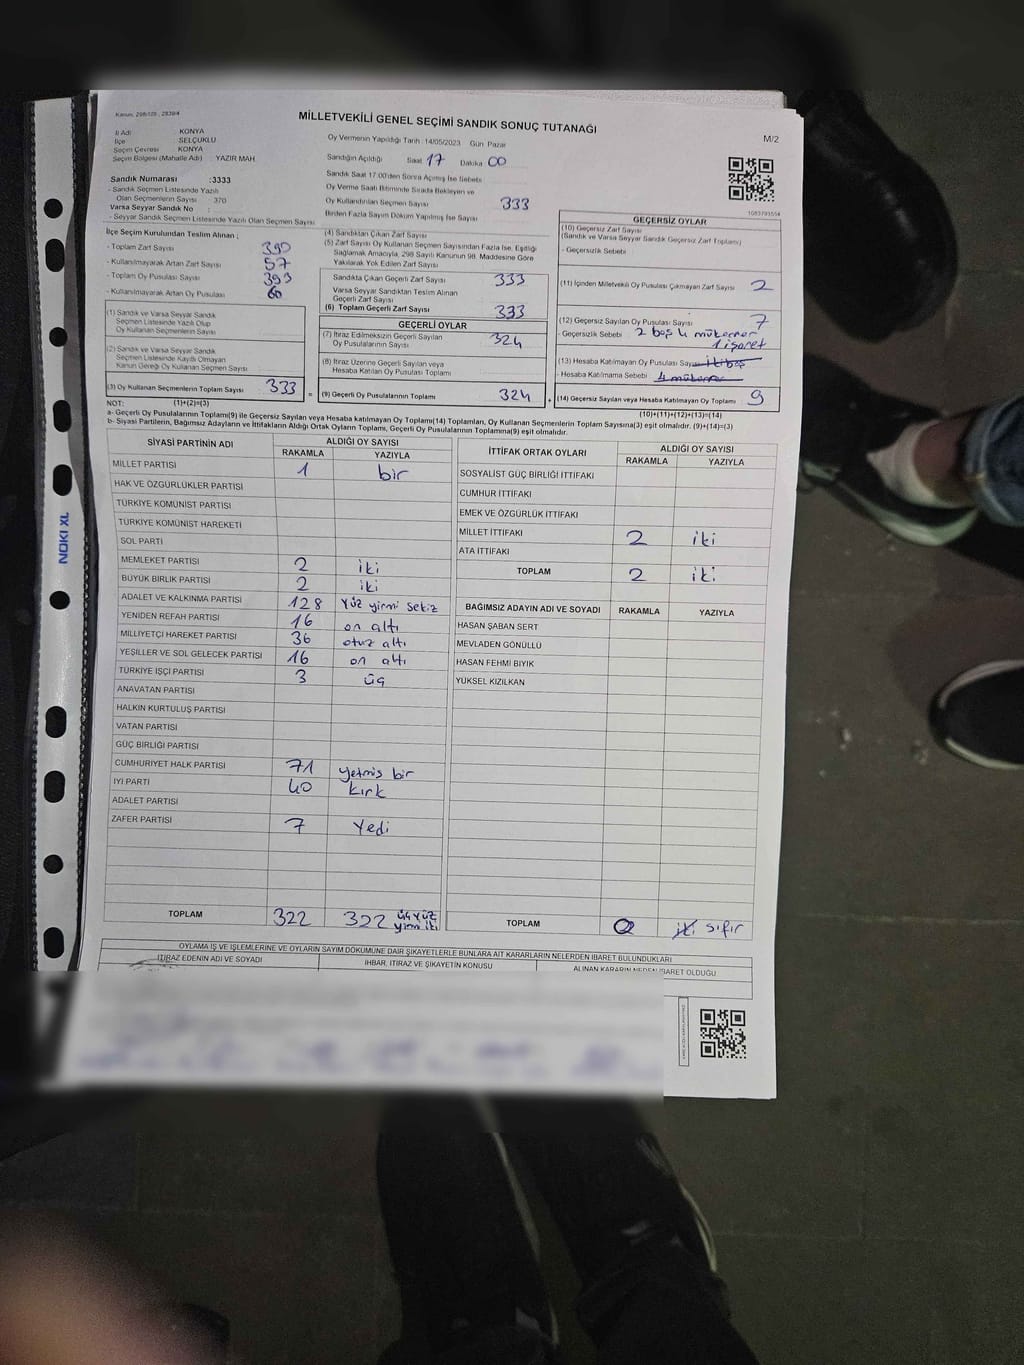 Kanun: 298/105 , 2839/4
MİLLETVEKİLİ GENEL SEÇİMİ SANDIK SONUÇ TUTANAĞI
M/2
İl Adı KONYA
İlçe SELÇUKLU
Seçim Çevresi KONYA
Seçim Bölgesi (Mahalle Adı) YAZIR MAH
Sandık Numarası :3333
- Sandık Seçmen Listesinde Yazılı
Olan Seçmenlerin Sayısı 370
Varsa Seyyar Sandık No :
- Seyyar Sandık Seçmen Listesinde Yazılı Olan Seçmen Sayısı
Oy Vermenin Yapıldığı Tarih :14/05/2023 Gün Pazar
Sandığın Açıldığı Saat 17 Dakika 00
Sandık Saat 17:00'den Sonra Açılmış İse Sebebi
Oy Verme Saati Bitiminde Sırada Bekleyen ve
Oy Kullandırılan Seçmen Sayısı 333
Birden Fazla Sayım Döküm Yapılmış İse Sayısı
1083793554
İlçe Seçim Kurulundan Teslim Alınan ;
- Toplam Zarf Sayısı 390
- Kullanılmayarak Artan Zarf Sayısı 57
- Toplam Oy Pusulası Sayısı 393
- Kullanılmayarak Artan Oy Pusulası 60
(1) Sandık ve Varsa Seyyar Sandık
Seçmen Listesinde Yazılı Olup
Oy Kullanan Seçmenlerin Sayısı
(2) Sandık ve Varsa Seyyar Sandık
Seçmen Listesinde Kayıtlı Olmayan
Kanun Gereği Oy Kullanan Seçmen Sayısı
(3) Oy Kullanan Seçmenlerin Toplam Sayısı 333
(1)+(2)=(3)
(4) Sandıktan Çıkan Zarf Sayısı
(5) Zarf Sayısı Oy Kullanan Seçmen Sayısından Fazla İse, Eşitliği
Sağlamak Amacıyla, 298 Sayılı Kanunun 98. Maddesine Göre
Yakılarak Yok Edilen Zarf Sayısı
Sandıkta Çıkan Geçerli Zarf Sayısı 333
Varsa Seyyar Sandıktan Teslim Alınan
Geçerli Zarf Sayısı
(6) Toplam Geçerli Zarf Sayısı 333
GEÇERLİ OYLAR
(7) İtiraz Edilmeksizin Geçerli Sayılan
Oy Pusulalarının Sayısı 324
(8) İtiraz Üzerine Geçerli Sayılan veya
Hesaba Katılan Oy Pusulası Toplamı
= (9) Geçerli Oy Pusulalarının Toplamı 324 +
GEÇERSİZ OYLAR
(10) Geçersiz Zarf Sayısı
(Sandık ve Varsa Seyyar Sandık Geçersiz Zarf Toplamı)
- Geçersizlik Sebebi
(11) İçinden Milletvekili Oy Pusulası Çıkmayan Zarf Sayısı 2
(12) Geçersiz Sayılan Oy Pusulası Sayısı 7
- Geçersizlik Sebebi 2 boş 4 mükerrer
1 işaret
(13) Hesaba Katılmayan Oy Pusulası Sayısı iki boş
- Hesaba Katılmama Sebebi 4 mükerrer
(14) Geçersiz Sayılan veya Hesaba Katılmayan Oy Toplamı 9
(10)+(11)+(12)+(13)=(14)
NOT:
a- Geçerli Oy Pusulalarının Toplamı(9) ile Geçersiz Sayılan veya Hesaba Katılmayan Oy Toplamı(14) Toplamları, Oy Kullanan Seçmenlerin Toplam Sayısına(3) eşit olmalıdır. (9)+(14)=(3)
b- Siyasi Partilerin, Bağımsız Adayların ve İttifakların Aldığı Ortak Oyların Toplamı, Geçerli Oy Pusulalarının Toplamına(9) eşit olmalıdır.
SİYASİ PARTİNİN ADI ALDIĞI OY SAYISI
RAKAMLA YAZIYLA
MİLLET PARTİSİ 1 bir
HAK VE ÖZGÜRLÜKLER PARTİSİ
TÜRKİYE KOMÜNİST PARTİSİ
TÜRKİYE KOMÜNİST HAREKETİ
SOL PARTİ
MEMLEKET PARTİSİ 2 iki
BÜYÜK BİRLİK PARTİSİ 2 iki
ADALET VE KALKINMA PARTİSİ 128 yüz yirmi sekiz
YENİDEN REFAH PARTİSİ 16 on altı
MİLLİYETÇİ HAREKET PARTİSİ 36 otuz altı
YEŞİLLER VE SOL GELECEK PARTİSİ 16 on altı
TÜRKİYE İŞÇİ PARTİSİ 3 üç
ANAVATAN PARTİSİ
HALKIN KURTULUŞ PARTİSİ
VATAN PARTİSİ
GÜÇ BİRLİĞİ PARTİSİ
CUMHURİYET HALK PARTİSİ 71 yetmiş bir
İYİ PARTİ 40 kırk
ADALET PARTİSİ
ZAFER PARTİSİ 7 yedi
TOPLAM 322 322 üçyüz
yirmi iki
İTTİFAK ORTAK OYLARI ALDIĞI OY SAYISI
RAKAMLA YAZIYLA
SOSYALİST GÜÇ BİRLİĞİ İTTİFAKI
CUMHUR İTTİFAKI
EMEK VE ÖZGÜRLÜK İTTİFAKI
MİLLET İTTİFAKI 2 iki
ATA İTTİFAKI
TOPLAM 2 iki
BAĞIMSIZ ADAYIN ADI VE SOYADI RAKAMLA YAZIYLA
HASAN ŞABAN SERT
MEVLADEN GÖNÜLLÜ
HASAN FEHMİ BIYIK
YÜKSEL KIZILKAN
TOPLAM 0 iki sıfır
OYLAMA İŞ VE İŞLEMLERİNE VE OYLARIN SAYIM DÖKÜMÜNE DAİR ŞİKAYETLERLE BUNLARA AİT KARARLARIN NELERDEN İBARET BULUNDUKLARI
İTİRAZ EDENİN ADI VE SOYADI İHBAR, İTİRAZ VE ŞİKAYETİN KONUSU ALINAN KARARIN NEDEN İBARET OLDUĞU
NOKI XL